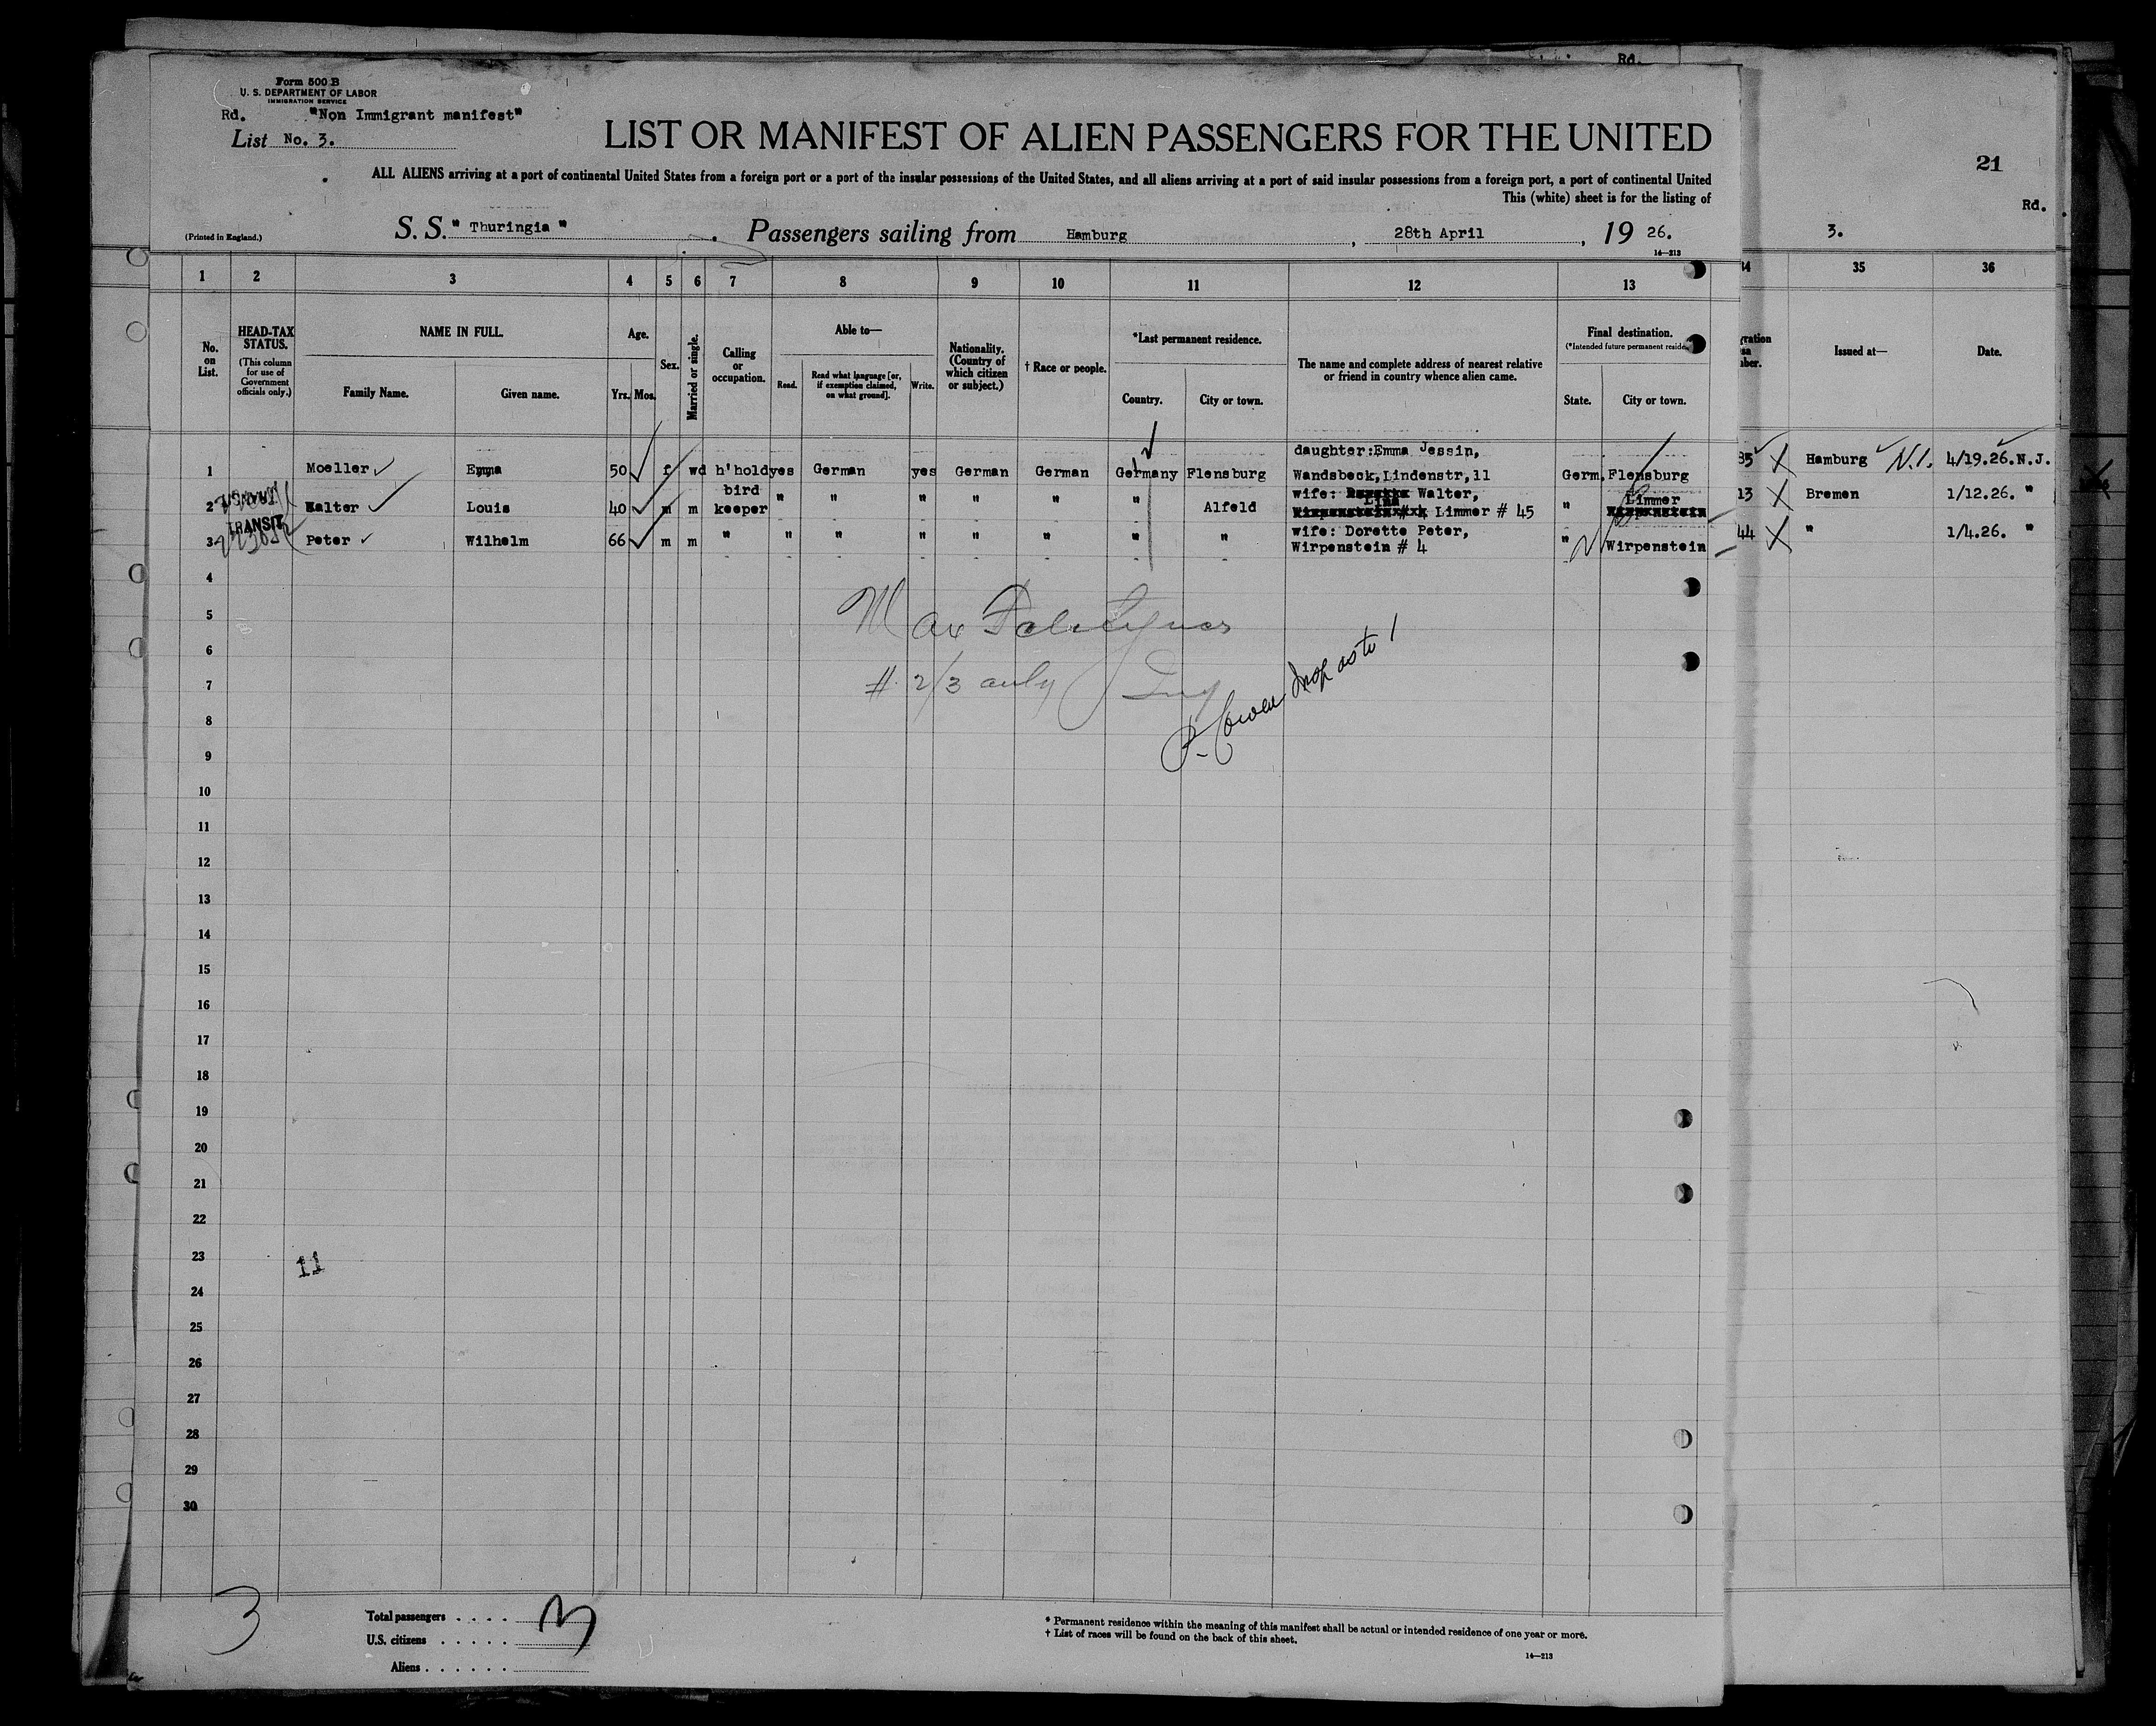 Form 500 B
U. S. DEPARTMENT OF LABOR
IMMIGRATION SERVICE
Rd. "Non Immigrant manifest"
List No. 3.
LIST OR MANIFEST OF ALIEN PASSENGERS FOR THE UNITED
ALL ALIENS arriving at a port of continental United States from a foreign port or a port of the insular possessions of the United States, and all aliens arriving at a port of said insular possessions from a foreign port, a port of continental United
This (white) sheet is for the listing of
(Printed in England.)
S. S. " Thuringia " . Passengers sailing from Hamburg , 28th April , 19 26.
14—213
Rd.
21
Rd.
3.
1 2 3 4 5 6 7 8 9 10 11 12 13 35 36
No. on List.
HEAD-TAX STATUS.
(This column for use of Government officials only.)
NAME IN FULL.
Family Name. Given name.
Age.
Yrs. Mos.
Sex.
Married or single.
Calling or occupation.
Able to—
Read. Read what language [or, if exemption claimed, on what ground]. Write.
Nationality. (Country of which citizen or subject.)
† Race or people.
*Last permanent residence.
Country. City or town.
The name and complete address of nearest relative or friend in country whence alien came.
Final destination.
State. City or town.
Issued at—
Date.
daughter:Emma Jessin,
1 Moeller Emma 50 f wd h'hold yes German yes German German Germany Flensburg Wandsbeck,Lindenstr,11 Germ. Flensburg 85 Hamburg N.I. 4/19.26.N.J.
bird wife: Lina Walter, Limmer
2 Walter Louis 40 m m keeper " " " " " " Alfeld Limmer # 45 " 13 Bremen 1/12.26. "
TRANSIT
wife: Dorette Peter,
3 Peter Wilhelm 66 m m " " " " " " " " Wirpenstein # 4 " Wirpenstein 44 " 1/4.26. "
4
5
Max
6
7
# 2/3 only
Insp as to 1
8
9
10
11
12
13
14
15
16
17
18
19
20
21
22
23
11
24
25
26
27
28
29
30
3
Total passengers . . . . 3
U.S. citizens . . . . .
Aliens . . . . . .
* Permanent residence within the meaning of this manifest shall be actual or intended residence of one year or more.
† List of races will be found on the back of this sheet.
14—213